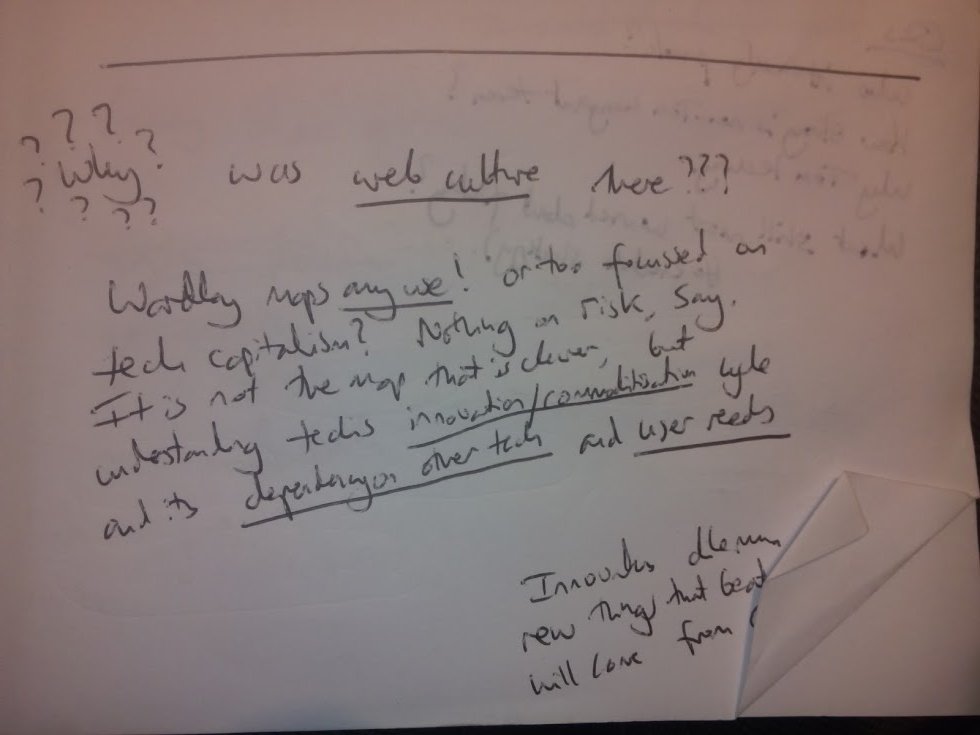 ? ? ?
? Why ? was web culture there ???
? ? ??
Wardley maps any use! or too focussed on
tech capitalism? Nothing on risk, say.
It is not the map that is clever, but
understanding techs innovation/commoditisation cycle
and its dependency on other tech and user needs
Innovators dilemma
new things that beat
will come from